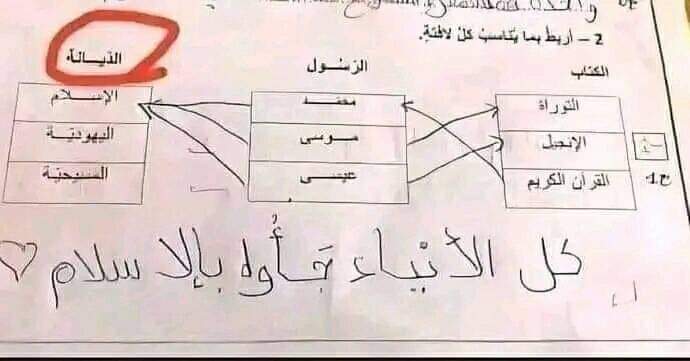 2 - أربط بما يناسب كل لافتة.
الكتاب الرسول الديانة
التوراة محمد الإسلام
الإنجيل موسى اليهودية
القرآن الكريم عيسى المسيحية
كل الأنبياء جَأُوا بالإسلام ♡